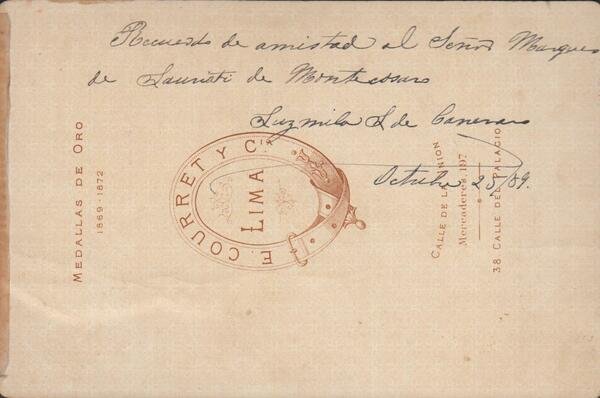 Recuerdo de amistad al Señor Marques
de Lauriati de Montecosaro
Luzmila L de Canevaro
Octubre 25/89.
MEDALLAS DE ORO
1869-1872
E. COURRET Y Cia
LIMA
CALLE DE LA UNION
Mercaderes, 197
38 CALLE DEL PALACIO